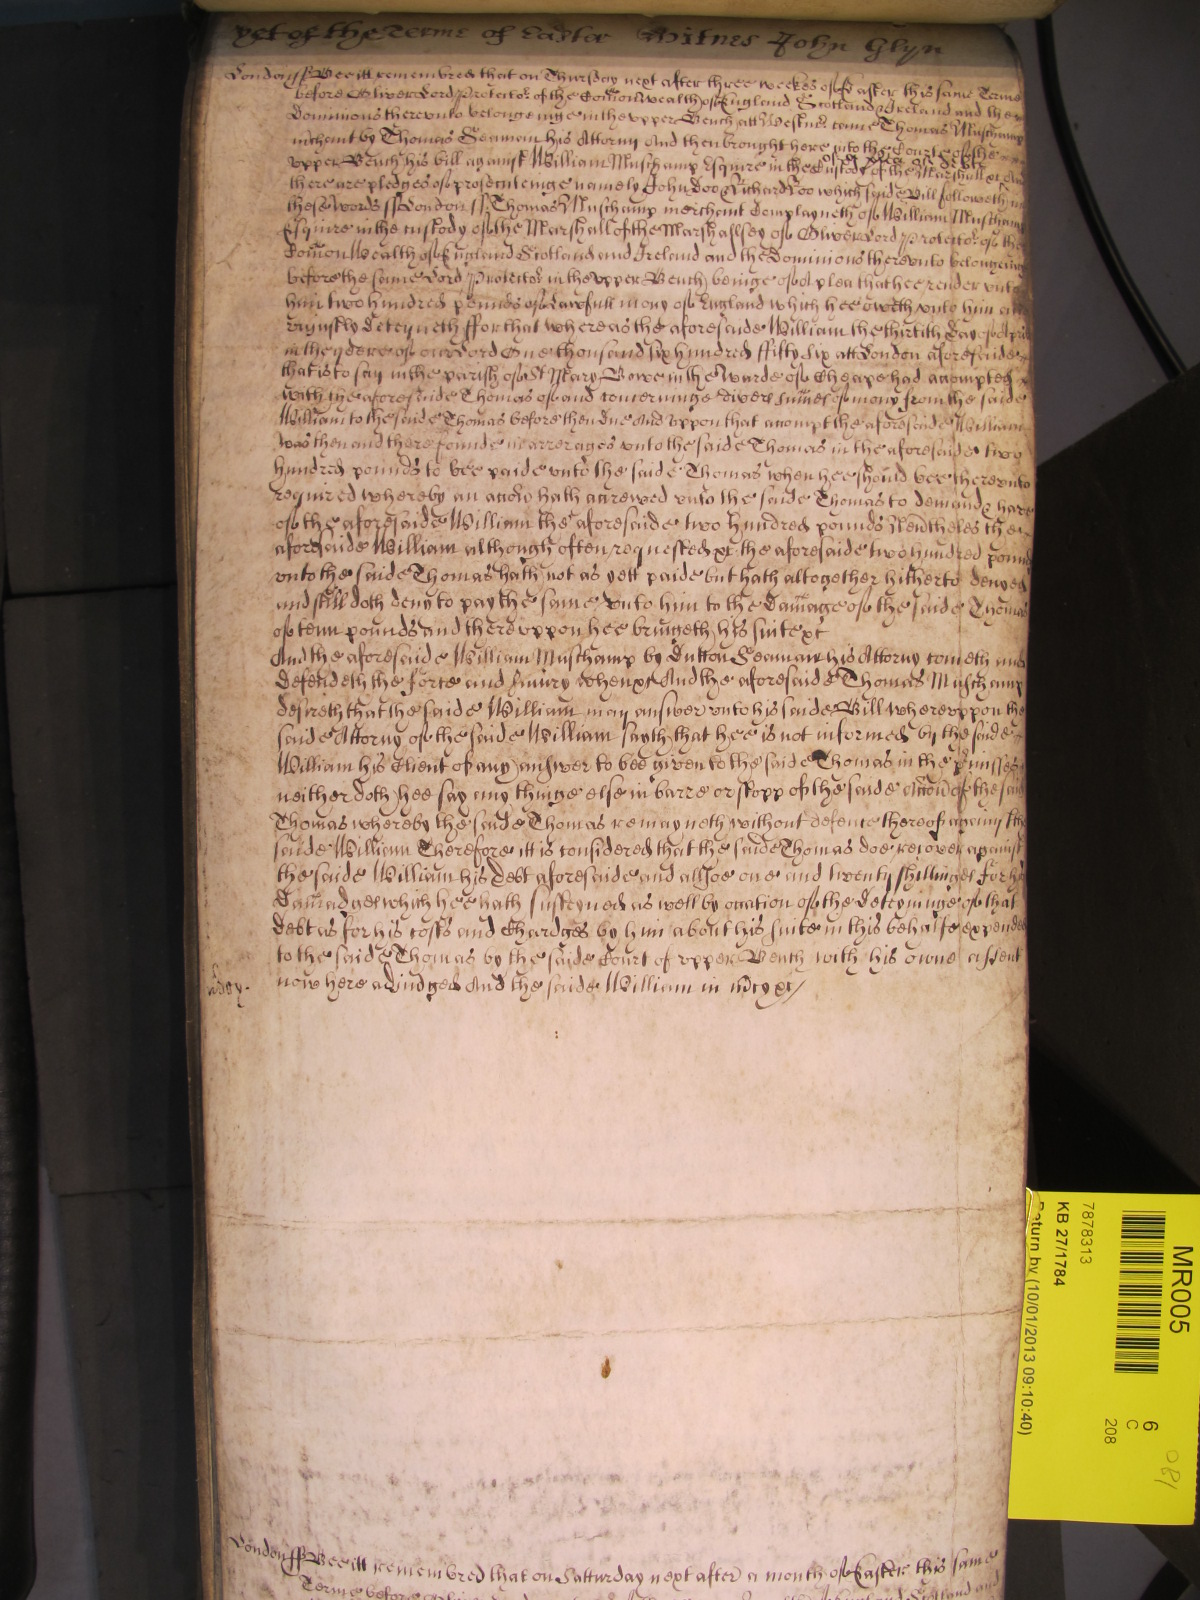 yet of the Terme of Easter Witnes John Glyn
London ss Bee itt remembred that on Thursday next after three weekes of Easter this same Terme
before Oliver Lord Protector of the Comonwealth of England Scotland & Ireland and the
Dominions thereunto belonginge in the upper Bench att Westmr. came Thomas Muschamp
merchant by Thomas Seaman his Attorny And then brought here into the Court of the
upper Bench his bill against William Muschamp Esquire in the Custody of the Marshall xc of a plea of debt And
there are pledges of prosecuteinge namely John Doo & Richard Roo which saide Bill followeth in
these words ss London ss Thomas Muschamp merchant Complayneth of William Muschamp
Esquire in the custody of the Marshall of the Marshallsey of Oliver Lord Protector of the
Comon Wealth of England Scotland and Ireland and the Dominions thereunto belonginge
before the same Lord Protector in the upper Bench beinge of A plea that hee render unto
him two hundred pounds of Lawfull mony of England which hee oweth unto him and
uniustly deteyneth ffor that whereas the aforesaide William the thirtith day of Aprill
in the yeere of our Lord One thousand six hundred ffifty six att London aforesaide
that is to say in the parish of St Mary Bowe in the Warde of Cheape had accompted
with the aforesaide Thomas of and concerninge divers sumes of mony from the saide
William to the saide Thomas before then due And uppon that accompt the aforesaide William
was then and there founde in arrerages unto the saide Thomas in the aforesaide two
hundred pounds to bee paide unto the saide Thomas when hee should bee thereunto
required whereby an accon hath accrewed unto the saide Thomas to demand & have
of the aforesaide William the aforesaide two hundred pounds Neatheles the
aforesaide William although often requested xc the aforesaide two hundred pounds
unto the saide Thomas hath not as yett paide but hath altogether hitherto denyed
and still doth deny to pay the same unto him to the damage of the saide Thomas
of tenn pounds and thereuppon hee bringeth his suite xc
And the aforesaide William Muschamp by Dutton Seaman his Attorny cometh and
defendeth the force and Iniury when xc And the aforesaide Thomas Muschamp
desireth that the saide William may answer unto his saide Bill whereuppon the
saide Attorny of the saide William sayth that hee is not informed by the saide
William his Client of any answer to bee given to the saide Thomas in the premisses
neither doth hee say any thinge else in barre or stopp of the saide accon of the said
Thomas whereby the saide Thomas remayneth without defence thereof against the
saide William Therefore itt is considered that the saide Thomas doe recover against
the saide William his debt aforesaide and allsoe one and twenty shillinges for his
damadges which hee hath susteyned as well by occation of the deteyninge of that
debt as for his costs and Chardges by him about his suite in this behalfe expended
to the saide Thomas by the saide Court of upper Bench with his owne assent
now here adiudged And the saide William in mcy xc
London ss Bee itt remembred that on Satturday next after a month of Easter this same
Terme before
MR005
7878313
KB 27/1784
Return by (10/01/2013 09:10:40)
6
C
208